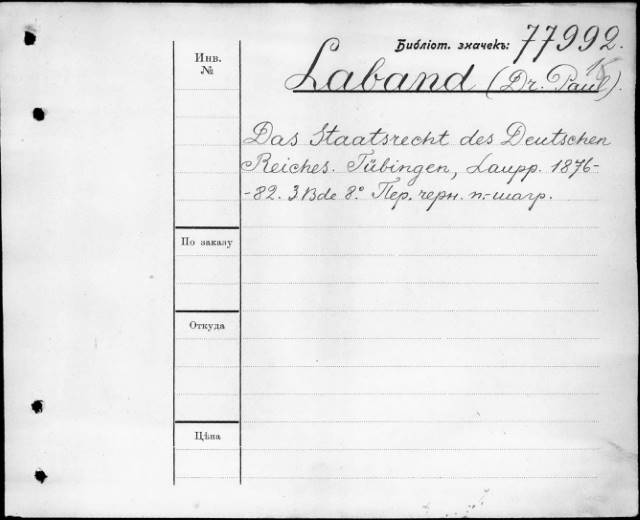 Библіот. значекъ: 77992.
Инв.
№
Laband (Dr. Paul).
Das Staatsrecht des Deutschen
Reiches. Tübingen, Laupp. 1876-
-82. 3 Bde 8.° Пер. черн. п.-шагр.
По заказу
Откуда
Цѣна